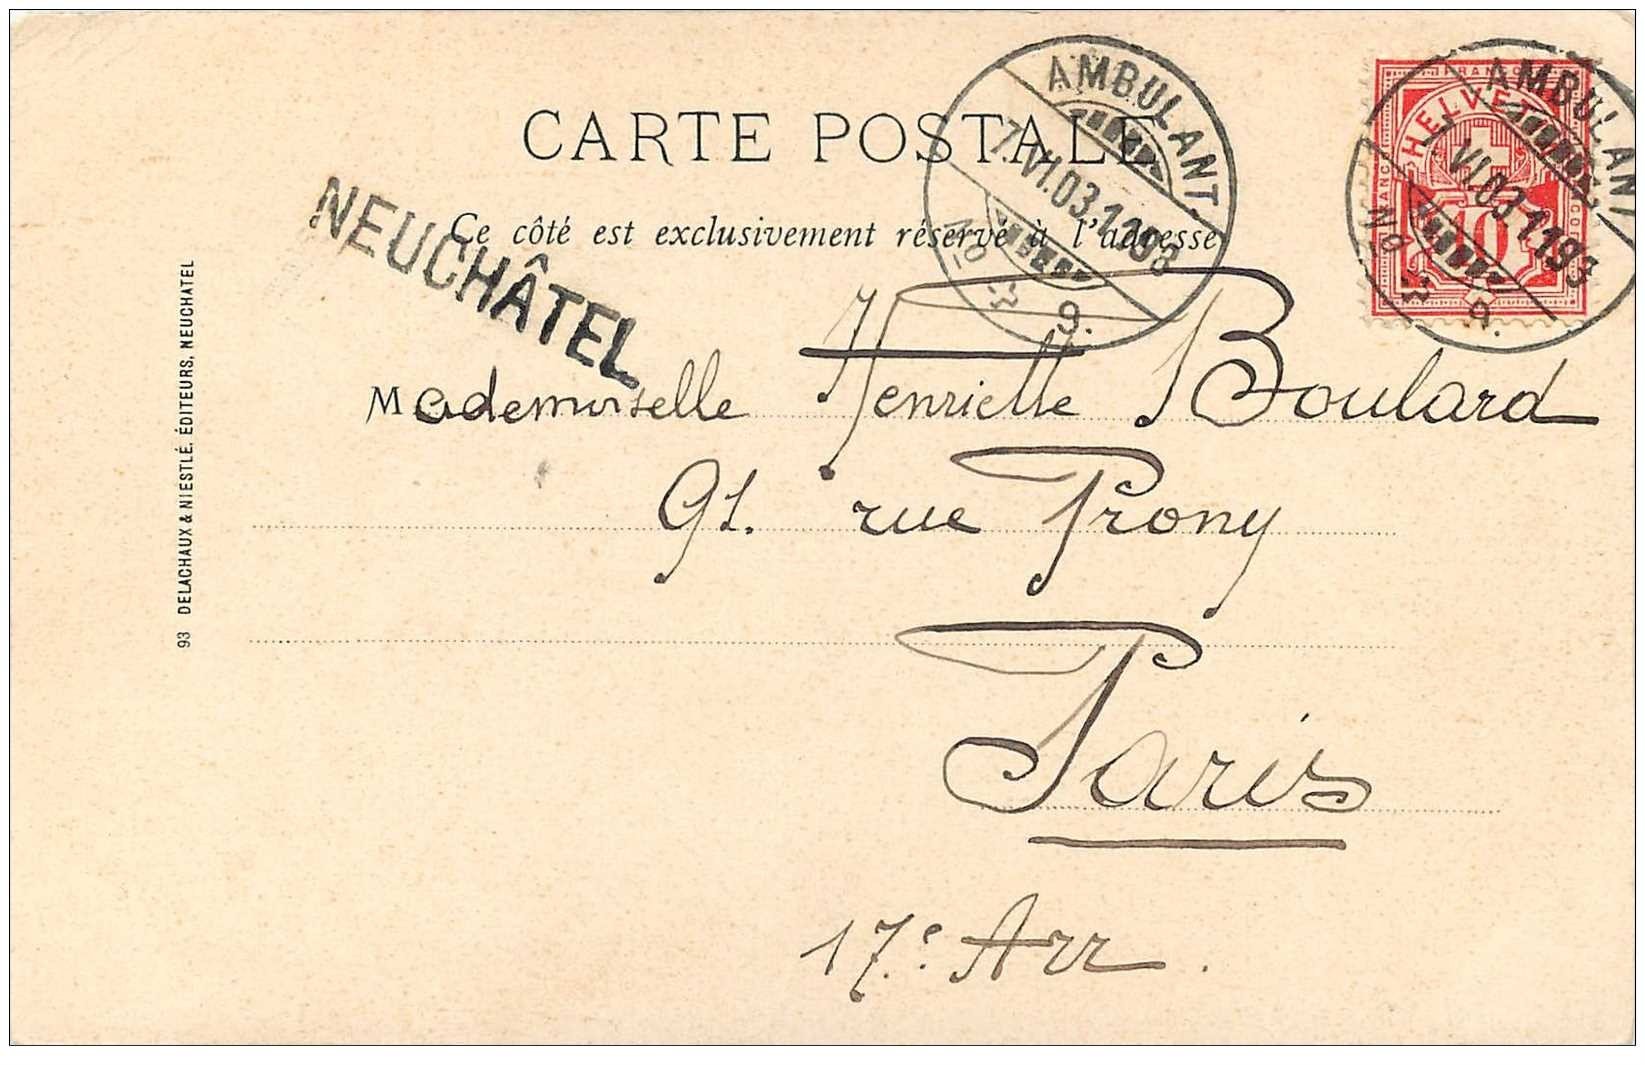 CARTE POSTALE
Ce côté est exclusivement réservé à l'adresse
NEUCHÂTEL
AMBULANT.
7.VI.03.1193
No 9.
AMBULANT
7.VI.03.1193
No 9.
FRANCO
HELVETIA
10
Mademoiselle Henriette Boulard
91. rue Prony
Paris
17.e Arr.
93 DELACHAUX & NIESTLÉ, ÉDITEURS, NEUCHATEL